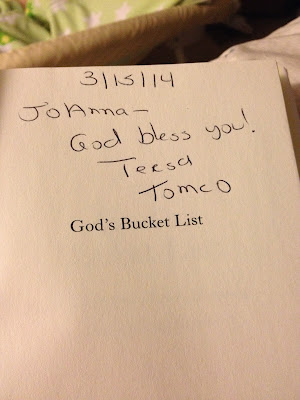 3/15/14
JoAnna-
God bless you!
Teresa
Tomeo
God's Bucket List